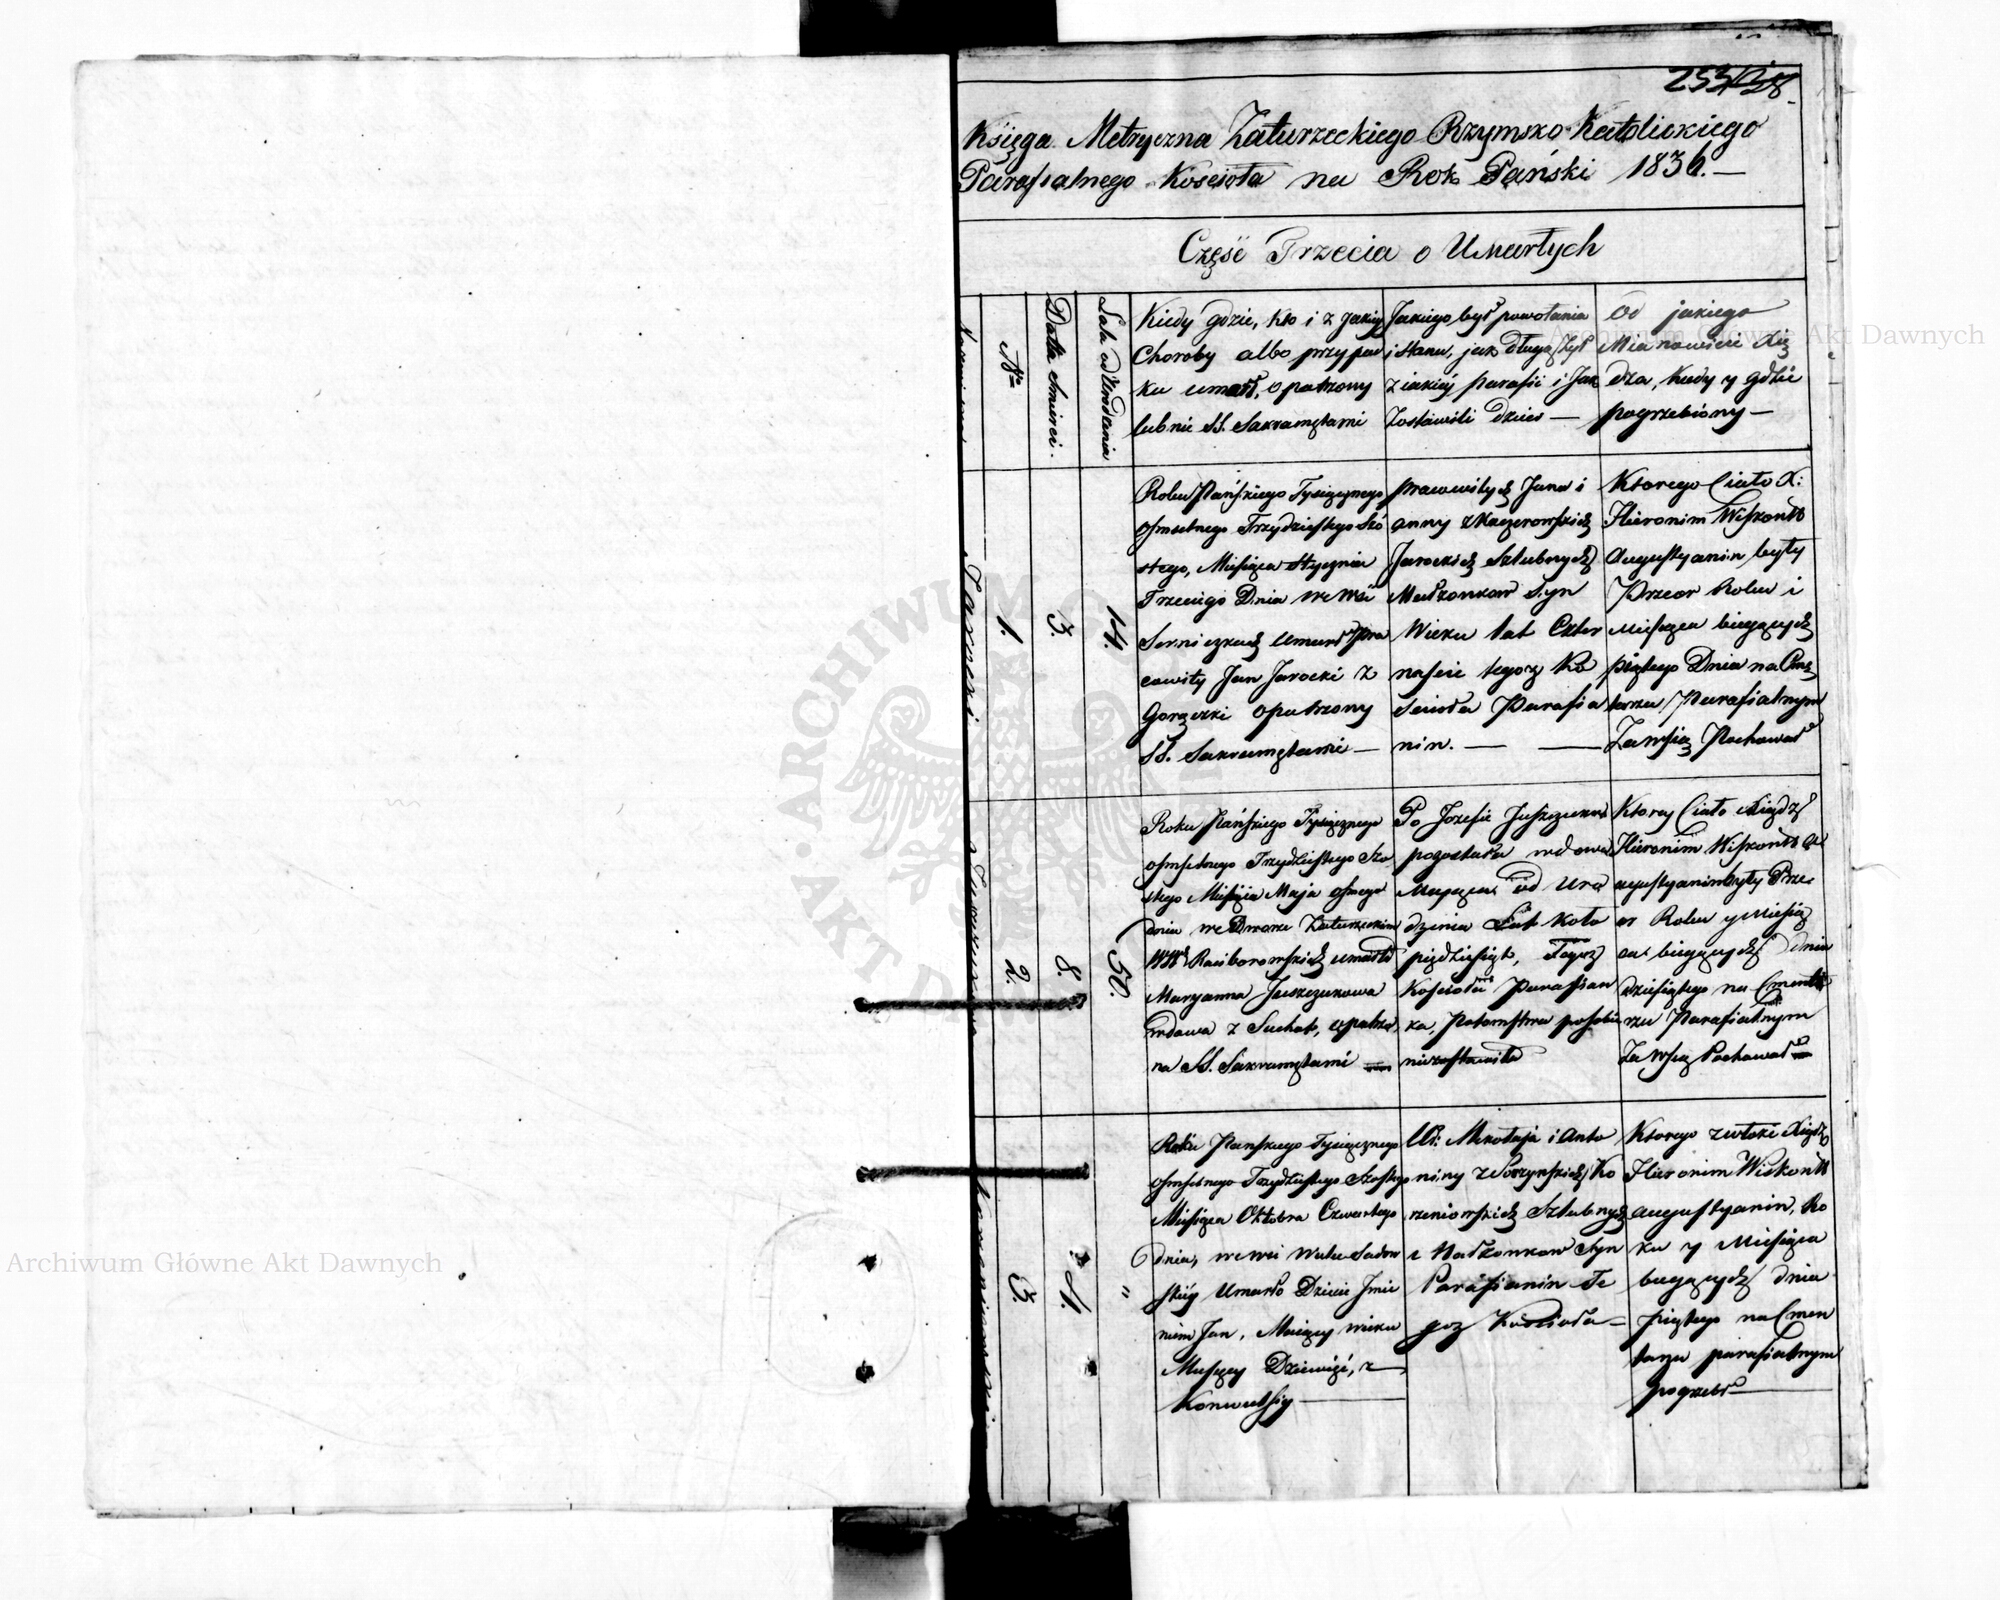 Księga Metryczna Zaturzeckiego Rzymsko Katolickiego
Parafialnego Kościoła na Rok Pański 1836.—
Część Trzecia o Umarłych
Nº
Datta Śmierci.
Lata od Urodzenia
Kiedy gdzie, kto i z jakiey
Choroby albo przypad
ku umarł, opatrzony
lub nie SS. Sakramętami
Jakiego był powołania
i stanu, jak długo żył
z jakiéj parafii i Jak
Zostawili dzieci —
Od jakiego
Mianowicie Xię
dza, kiedy y gdzie
pogrzebiony —
Jarocki
1.
3.
14.
Roku Pańskiego Tysiącznego
osmsetnego Trzydziestego Szó
stego, Miesiąca Stycznia
Trzeciego Dnia we wsi
umarł Pra
cowity Jan Jarocki z
Gorączki opatrzony
SS. Sakramętami —
Pracowitych Jana i
Anny z
Jarockich Szlubnych
Małżonkow Syn
Wieku lat Czter
naście tegoż Ko
ścioła Parafia
nin. —
Ktorego Ciało X:
Hieronim Wiskontt
Augustyanin były
Przeor Roku i
Miesiąca bieżących
piątego Dnia na Cmę
tarzu Parafialnym
Za wsią Pochował
2.
8.
50.
Roku Pańskiego Tysiącznego
osmsetnego Trzydziestego Szo
stego Miesiąca Maja osmego
dnia we Dworze Zaturzeckim
WW Raciborowskich umarła
Maryanna Juszczukowa
wdowa z Suchot, opatrzo
na SS. Sakramętami —
Po Jozefie Juszczuku
pozostała wdowa
od Uro
dzenia Lat koło
pięcdziesiąt, Tegoż
Kościoła Parafian
ka, Potomstwa po sobie
nie zostawiła
Ktorey Ciało Xiądz
Hieronim Wiskontt Au
gustyanin były Prze
or Roku y Miesią
ca bieżących dnia
dziesiątego na Cmenta
rzu Parafialnym
Za Wsią Pochował —
3.
4.
"
Roku Pańskiego Tysiącznego
osmsetnego Trzydziestego Szostego
Miesiąca Oktobra Czwartego
dnia, we wsi Wulce Sadow
skiéy Umarło Dziecie Imie
niem Jan, Maiący wieku
Miesięcy Dziewięć, z
Konwulsiy —
Mikołaja i Anto
niny z Ko
rzeniowskich Szlubnych
Małżonkow Syn
Parafianin Te
goż Kościoła —
Ktorego zwłoki Xiądz
Hieronim Wiskontt
Augustyanin, Ro
ku y Miesiąca
bieżących dnia
piątego na Cmen
tarzu parafialnym
pogrzebł
Archiwum Główne Akt Dawnych
Archiwum Główne Akt Dawnych
ARCHIWUM
AKT D